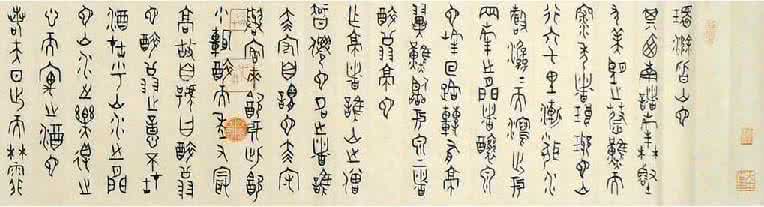 環滁皆山也
其西南諸峰林壑
尤美望之蔚然而
深秀者瑯琊也山
行六七里漸聞水
聲潺潺而瀉出于
兩峰之間者釀泉
也峰回路轉有亭
翼然臨于泉上者
醉翁亭也
作亭者誰山之僧
智僊也名之者誰
太守自謂也太守
與客來飲于此飲
少輒醉而年又最
高故自號曰醉翁
也醉翁之意不在
酒在乎山水之間
也山水之樂得之
心而寓之酒也
若夫日出而林霏